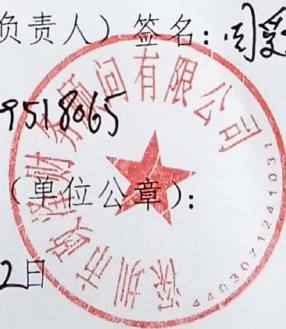 负责人）签名：周
9518065
（单位公章）：
2日
深圳市政泽财务顾问有限公司
4403071241031